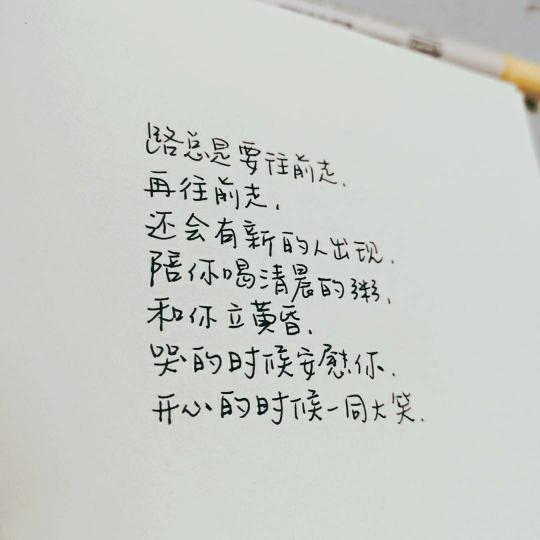 路总是要往前走.
再往前走.
还会有新的人出现.
陪你喝清晨的粥.
和你立黄昏.
哭的时候安慰你.
开心的时候一同大笑.